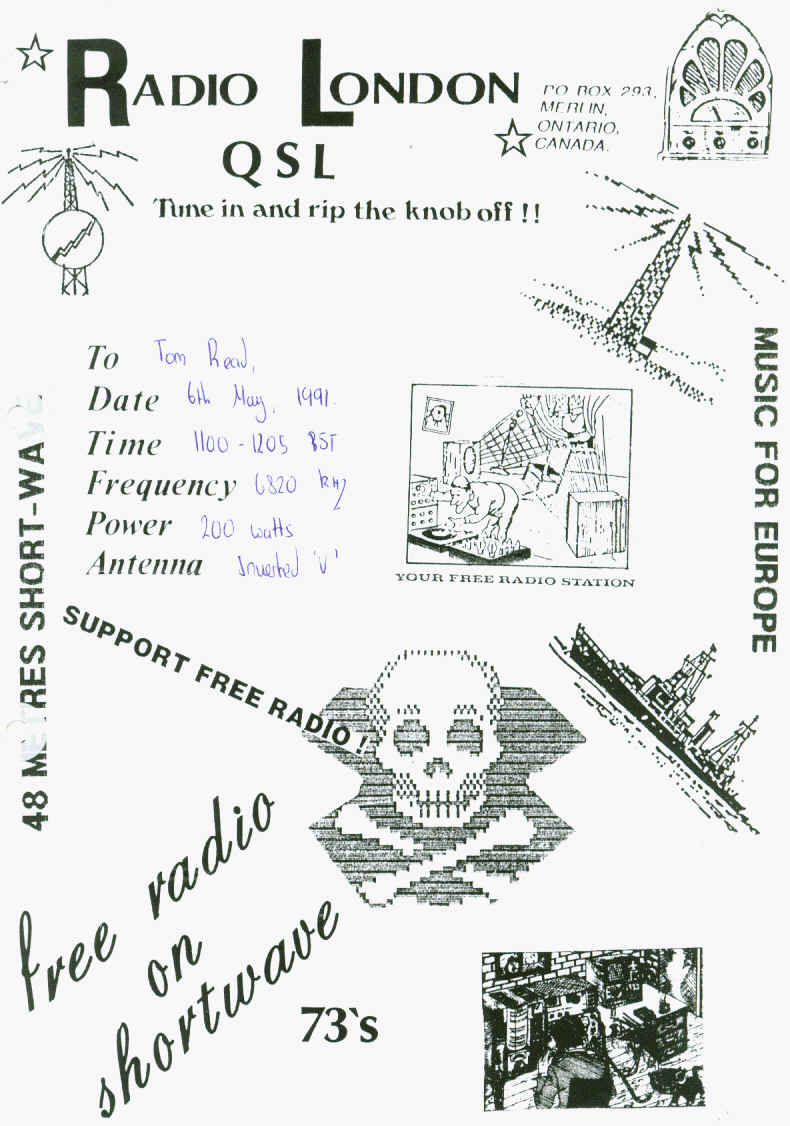 RADIO LONDON
QSL
Tune in and rip the knob off !!
PO BOX 293,
MERLIN,
ONTARIO,
CANADA.
To Tom Read,
Date 6th May, 1991.
Time 1100 - 1205 BST
Frequency 6820 kHz
Power 200 watts
Antenna Inverted 'V'
YOUR FREE RADIO STATION
48 METRES SHORT-WAVE
MUSIC FOR EUROPE
SUPPORT FREE RADIO !
free radio
on
shortwave
73`s